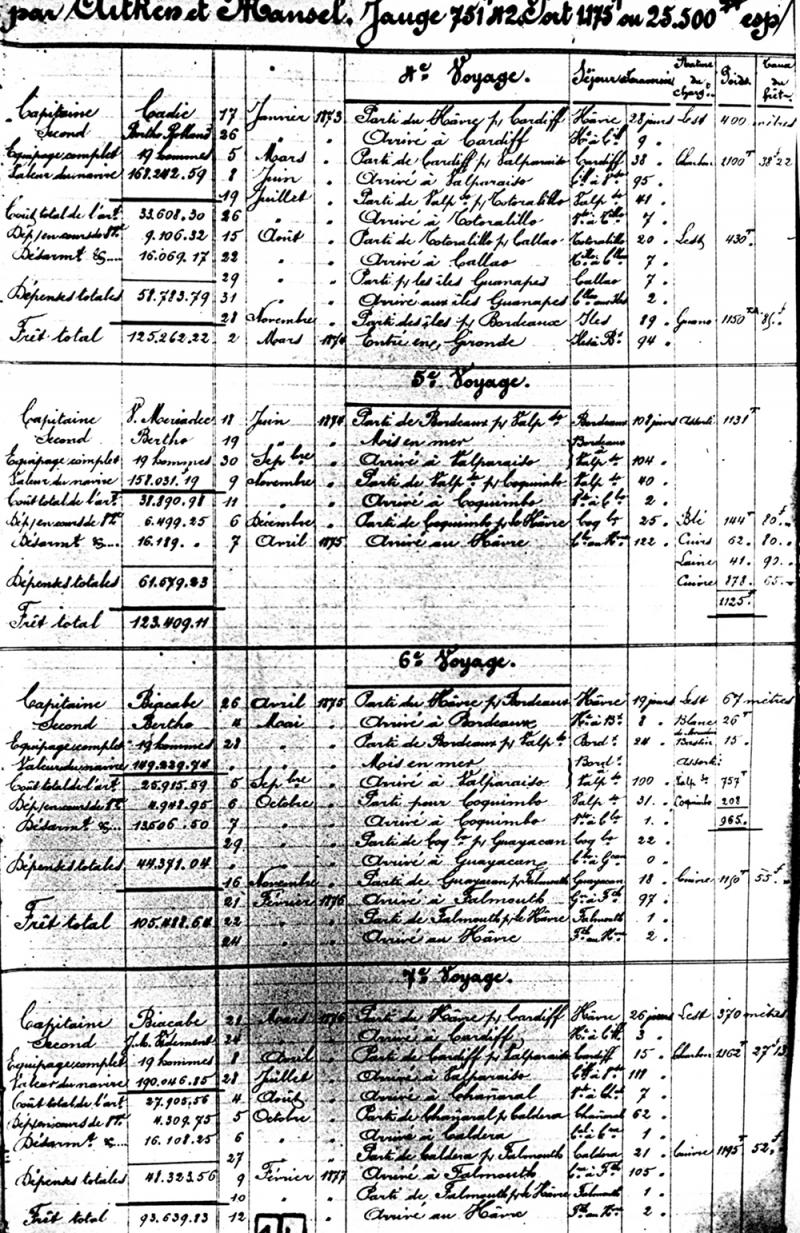 par Aitken et Mansel. Jauge 751 tx 42. Port 1175 tx ou 25.500 esp/
4e Voyage. Séjour Traversée Nature du charg. Poids Taux du frêt
Capitaine Cadic 17 Janvier 1873 Parti du Hâvre p/ Cardiff Hâvre 28 jours Lest 400 mètres
Second Bertho Rolland 26 " Arrivé à Cardiff 9
Equipage complet 19 hommes 5 Mars Parti de Cardiff p/ Valparaiso Cardiff 38 Charbon 1100T 38f 22
Valeur du navire 168.242.59 8 Juin Arrivé à Valparaiso 95
19 Juillet Parti de Valp. p/ Totoralillo Valp. 41
Coût total de l'art 33.608.30 26 " Arrivé à Totoralillo 7
Dép/ en cours de 9.106.32 15 Août Parti de Totoralillo p/ Callao Totoralillo 20 Lest 430T
Désarmt &.... 16.069.17 22 " Arrivé à Callao 7
29 " Parti p/ les îles Guanapes Callao 7
Dépenses totales 58.783.79 31 " Arrivé aux îles Guanapes 2
28 Novembre Parti des îles p/ Bordeaux Iles 89 Guano 1150 85f
Frêt total 125.262.22 2 Mars 1874 Entré en Gironde 94
5e Voyage.
Capitaine V. Meriadec 18 Juin 1874 Parti de Bordeaux p/ Valp. Bordeaux 108 jours Assorti 1131T
Second Bertho 19 " Mis en mer Bordeaux
Equipage complet 19 hommes 30 Sepbre Arrivé à Valparaiso Valp. 104
Valeur du navire 158.031.19 9 Novembre Parti de Valp. p/ Coquimbo Valp. 40
Coût total de l'art 38.890.98 11 " Arrivé à Coquimbo 2
Dép/ en cours de 6.499.25 6 Décembre Parti de Coquimbo p/ le Hâvre Coq. 25 Blé 144T 80f
Désarmt &.... 16.189. " 7 Avril 1875 Arrivé au Hâvre 122 Cuirs 62. 80.
Laine 41. 90.
Dépenses totales 61.579.23 Cuivre 878. 65.
1125T
Frêt total 123.409.11
6e Voyage.
Capitaine Biacabe 26 Avril 1875 Parti du Hâvre p/ Bordeaux Hâvre 19 jours Lest 67 mètres
Second Bertho 4 Maai Arrivé à Bordeaux 8 Blanc 26T
Equipage complet 19 hommes 28 " Parti de Bordeaux p/ Valp. Bord. 24 15
Valeur du navire 149.229.74 " Mis en mer Bord. Assorti
Coût total de l'art 25.915.59 5 Sepbre Arrivé à Valparaiso Valp. 100 Valp. 757T
Dép/ en cours de 4.948.95 6 Octobre Parti pour Coquimbo Valp. 31 Coquimbo 208
Désarmt &.... 13.506.50 7 " Arrivé à Coquimbo 1 965
29 " Parti de Coq. p/ Guayacan Coq. 22
Dépenses totales 44.371.04 " Arrivé à Guayacan 0
16 Novembre Parti de Guayacan p/ Falmouth Guayacan 18 Cuivre 1150T 55f
21 Février 1876 Arrivé à Falmouth 97
Frêt total 105.488.64 22 " Parti de Falmouth p/ le Hâvre Falmouth 1
24 " Arrivé au Hâvre 2
7e Voyage.
Capitaine Biacabe 21 Mars 1876 Parti du Hâvre p/ Cardiff Hâvre 26 jours Lest 370 mètres
Second 24 " Arrivé à Cardiff 3
Equipage complet 19 hommes 8 Avril Parti de Cardiff p/ Valparaiso Cardiff 15 Charbon 1162T 27f 13
Valeur du navire 190.046.85 28 Juillet Arrivé à Valparaiso 118
Coût total de l'art 27.905.56 4 Août Arrivé à Chañaral 7
Dép/ en cours de 4.309.75 5 Octobre Parti de Chañaral p/ Caldera Chañaral 62
Désarmt &.... 16.108.25 6 " Arrivé à Caldera 1
27 " Parti de Caldera p/ Falmouth Caldera 21 Cuivre 1195T 52f
Dépenses totales 48.323.56 9 Février 1877 Arrivé à Falmouth 105
10 " Parti de Falmouth p/ le Hâvre Falmouth 1
Frêt total 93.639.83 12 " Arrivé au Hâvre 2